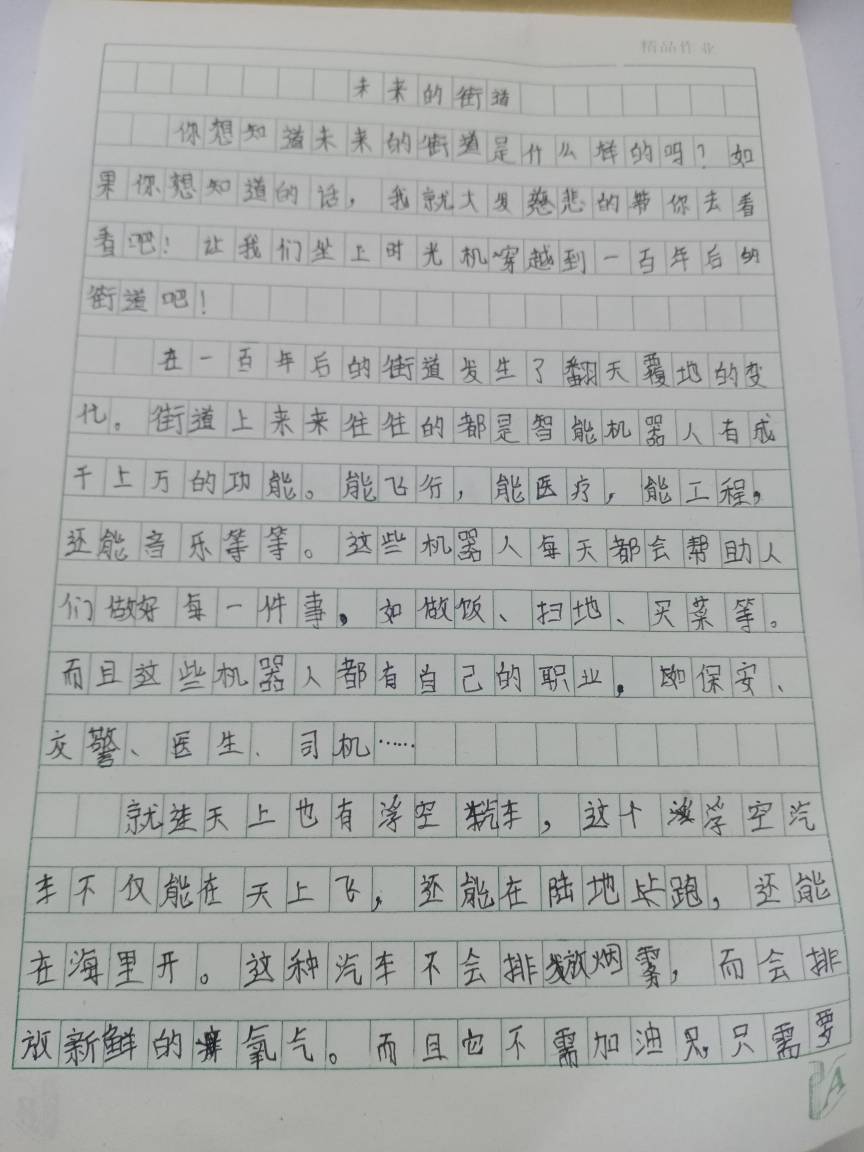 精品作业
未来的街道
你想知道未来的街道是什么样的吗？如
果你想知道的话，我就大发慈悲的带你去看
看吧！让我们坐上时光机穿越到一百年后的
街道吧！
在一百年后的街道发生了翻天覆地的变
化。街道上来来往往的都是智能机器人有成
千上万的功能。能飞行，能医疗，能工程，
还能音乐等等。这些机器人每天都会帮助人
们做好每一件事，如做饭、扫地、买菜等。
而且这些机器人都有自己的职业，如保安、
交警、医生、司机……
就连天上也有浮空汽车，这个浮空汽
车不仅能在天上飞，还能在陆地上跑，还能
在海里开。这种汽车不会排放烟雾，而会排
放新鲜的氧气。而且它不需加油，只需要